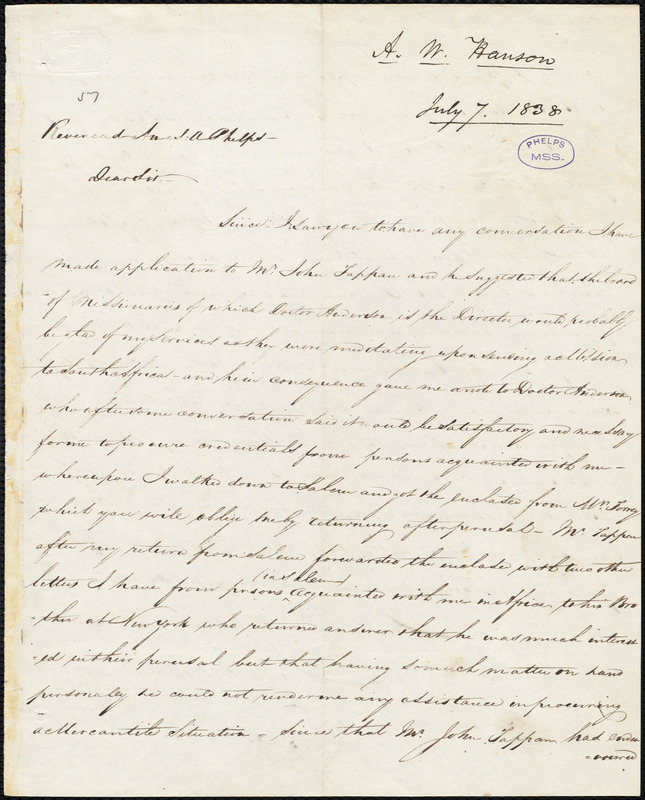 A. W. Hanson
July 7. 1838
57
PHELPS
MSS.
Reverend Am J. A Phelps
Dear Sir
Since I saw you to have any conversation I have
made application to Mr. John Tappan and he suggested that the board
of Missionaries of which Doctor Anderson is the Director would probably
be glad of my services as they were meditating upon sending a Mission
to South Africa - and he in consequence gave me a note to Doctor Anderson
who after some conversation said it would be satisfactory and necessary
for me to procure credentials from persons acquainted with me -
whereupon I walked down to Salem and got the enclosed from Mr. Torrey
which you will oblige me by returning after perusal - Mr. Tappan
after my return from Salem forwarded the enclose with two other
letters I have from prsons (in Salem) acquainted with me in Africa, to his Bro
-ther at New York who returned answer that he was much interest
-ed in their perusal but that having so much matter on hand
personally he could not render me any assistance in procuring
a Mercantile Situation - Since that Mr. John Tappan has endea
-voured